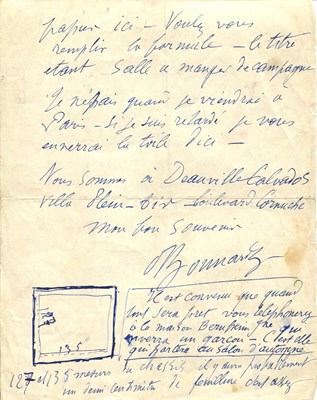 papier ici – Voulez vous
remplir la formule – le titre
etant Salle a manger de campagne
Je ne sais quand je viendrai a
Paris – si je suis retardé je vous
enverrai la toile d'ici –
Nous sommes à Deauville Calvados
villa boulevard Cornuché
mon bon souvenir
PBonnard
Il est convenu que quand
tout sera pret vous telephonerez
à la maison Bernheim jne qui
enverra un garçon – C'est elle
qui portera au salon d'automne
le chassis il y aura
127
135
127 et 135 metres
un demi centimetre de c'est assez